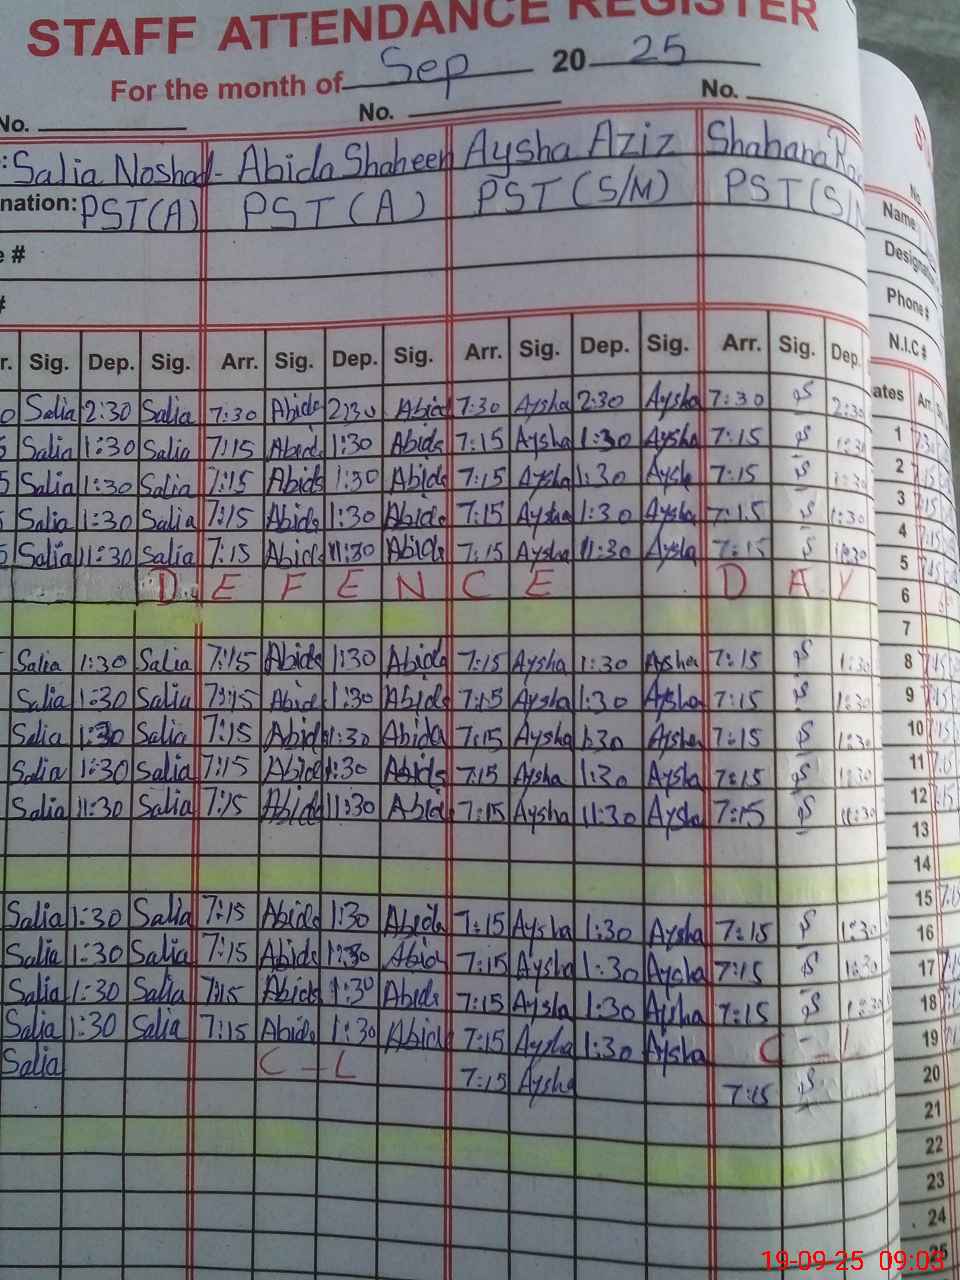 STAFF ATTENDANCE REGISTER
For the month of Sep 20 25
No. No. No.
: Salia Noshad- Abida Shaheen Aysha Aziz Shabana
nation: PST(A) PST (A) PST (S/M) PST (S/
e #
#
r. Sig. Dep. Sig. Arr. Sig. Dep. Sig. Arr. Sig. Dep. Sig. Arr. Sig. Dep.
0 Salia 2:30 Salia 7:30 Abida 2:30 Abid 7:30 Aysha 2:30 Aysha 7:30 S 2:30
5 Salia 1:30 Salia 7:15 Abid 1:30 Abida 7:15 Aysha 1:30 Aysha 7:15 S 1:30
5 Salia 1:30 Salia 7:15 Abida 1:30 Abida 7:15 Aysha 1:30 Aysha 7:15 S 1:30
Salia 1:30 Salia 7:15 Abida 1:30 Abida 7:15 Aysha 1:30 Aysha 7:15 S 1:30
5 Salia 11:30 Salia 7:15 Abida 11:30 Abida 7:15 Aysha 11:30 Aysha 7:15 S 11:30
D E F E N C E D A Y
Salia 1:30 Salia 7:15 Abida 1:30 Abida 7:15 Aysha 1:30 Aysha 7:15 S 1:30
Salia 1:30 Salia 7:15 Abida 1:30 Abida 7:15 Aysha 1:30 Aysha 7:15 S 1:30
Salia 1:30 Salia 7:15 Abida 1:30 Abida 7:15 Aysha 1:30 Aysha 7:15 S 1:30
Salia 1:30 Salia 7:15 Abida 1:30 Abida 7:15 Aysha 1:30 Aysha 7:15 S 1:30
Salia 11:30 Salia 7:15 Abida 11:30 Abida 7:15 Aysha 11:30 Aysha 7:15 S 11:30
Salia 1:30 Salia 7:15 Abida 1:30 Abida 7:15 Aysha 1:30 Aysha 7:15 S 1:30
Salia 1:30 Salia 7:15 Abida 1:30 Abida 7:15 Aysha 1:30 Aysha 7:15 S 1:30
Salia 1:30 Salia 7:15 Abida 1:30 Abida 7:15 Aysha 1:30 Aysha 7:15 S 1:30
Salia 1:30 Salia 7:15 Abida 1:30 Abida 7:15 Aysha 1:30 Aysha C - L
Salia C - L 7:15 Aysha 7:15 S
No
Name
Designation
Phone #
N.I.C #
ates Arr.
1
2
3
4
5
6
7
8
9
10
11
12
13
14
15
16
17
18
19
20
21
22
23
24
25
19-09-25 09:03